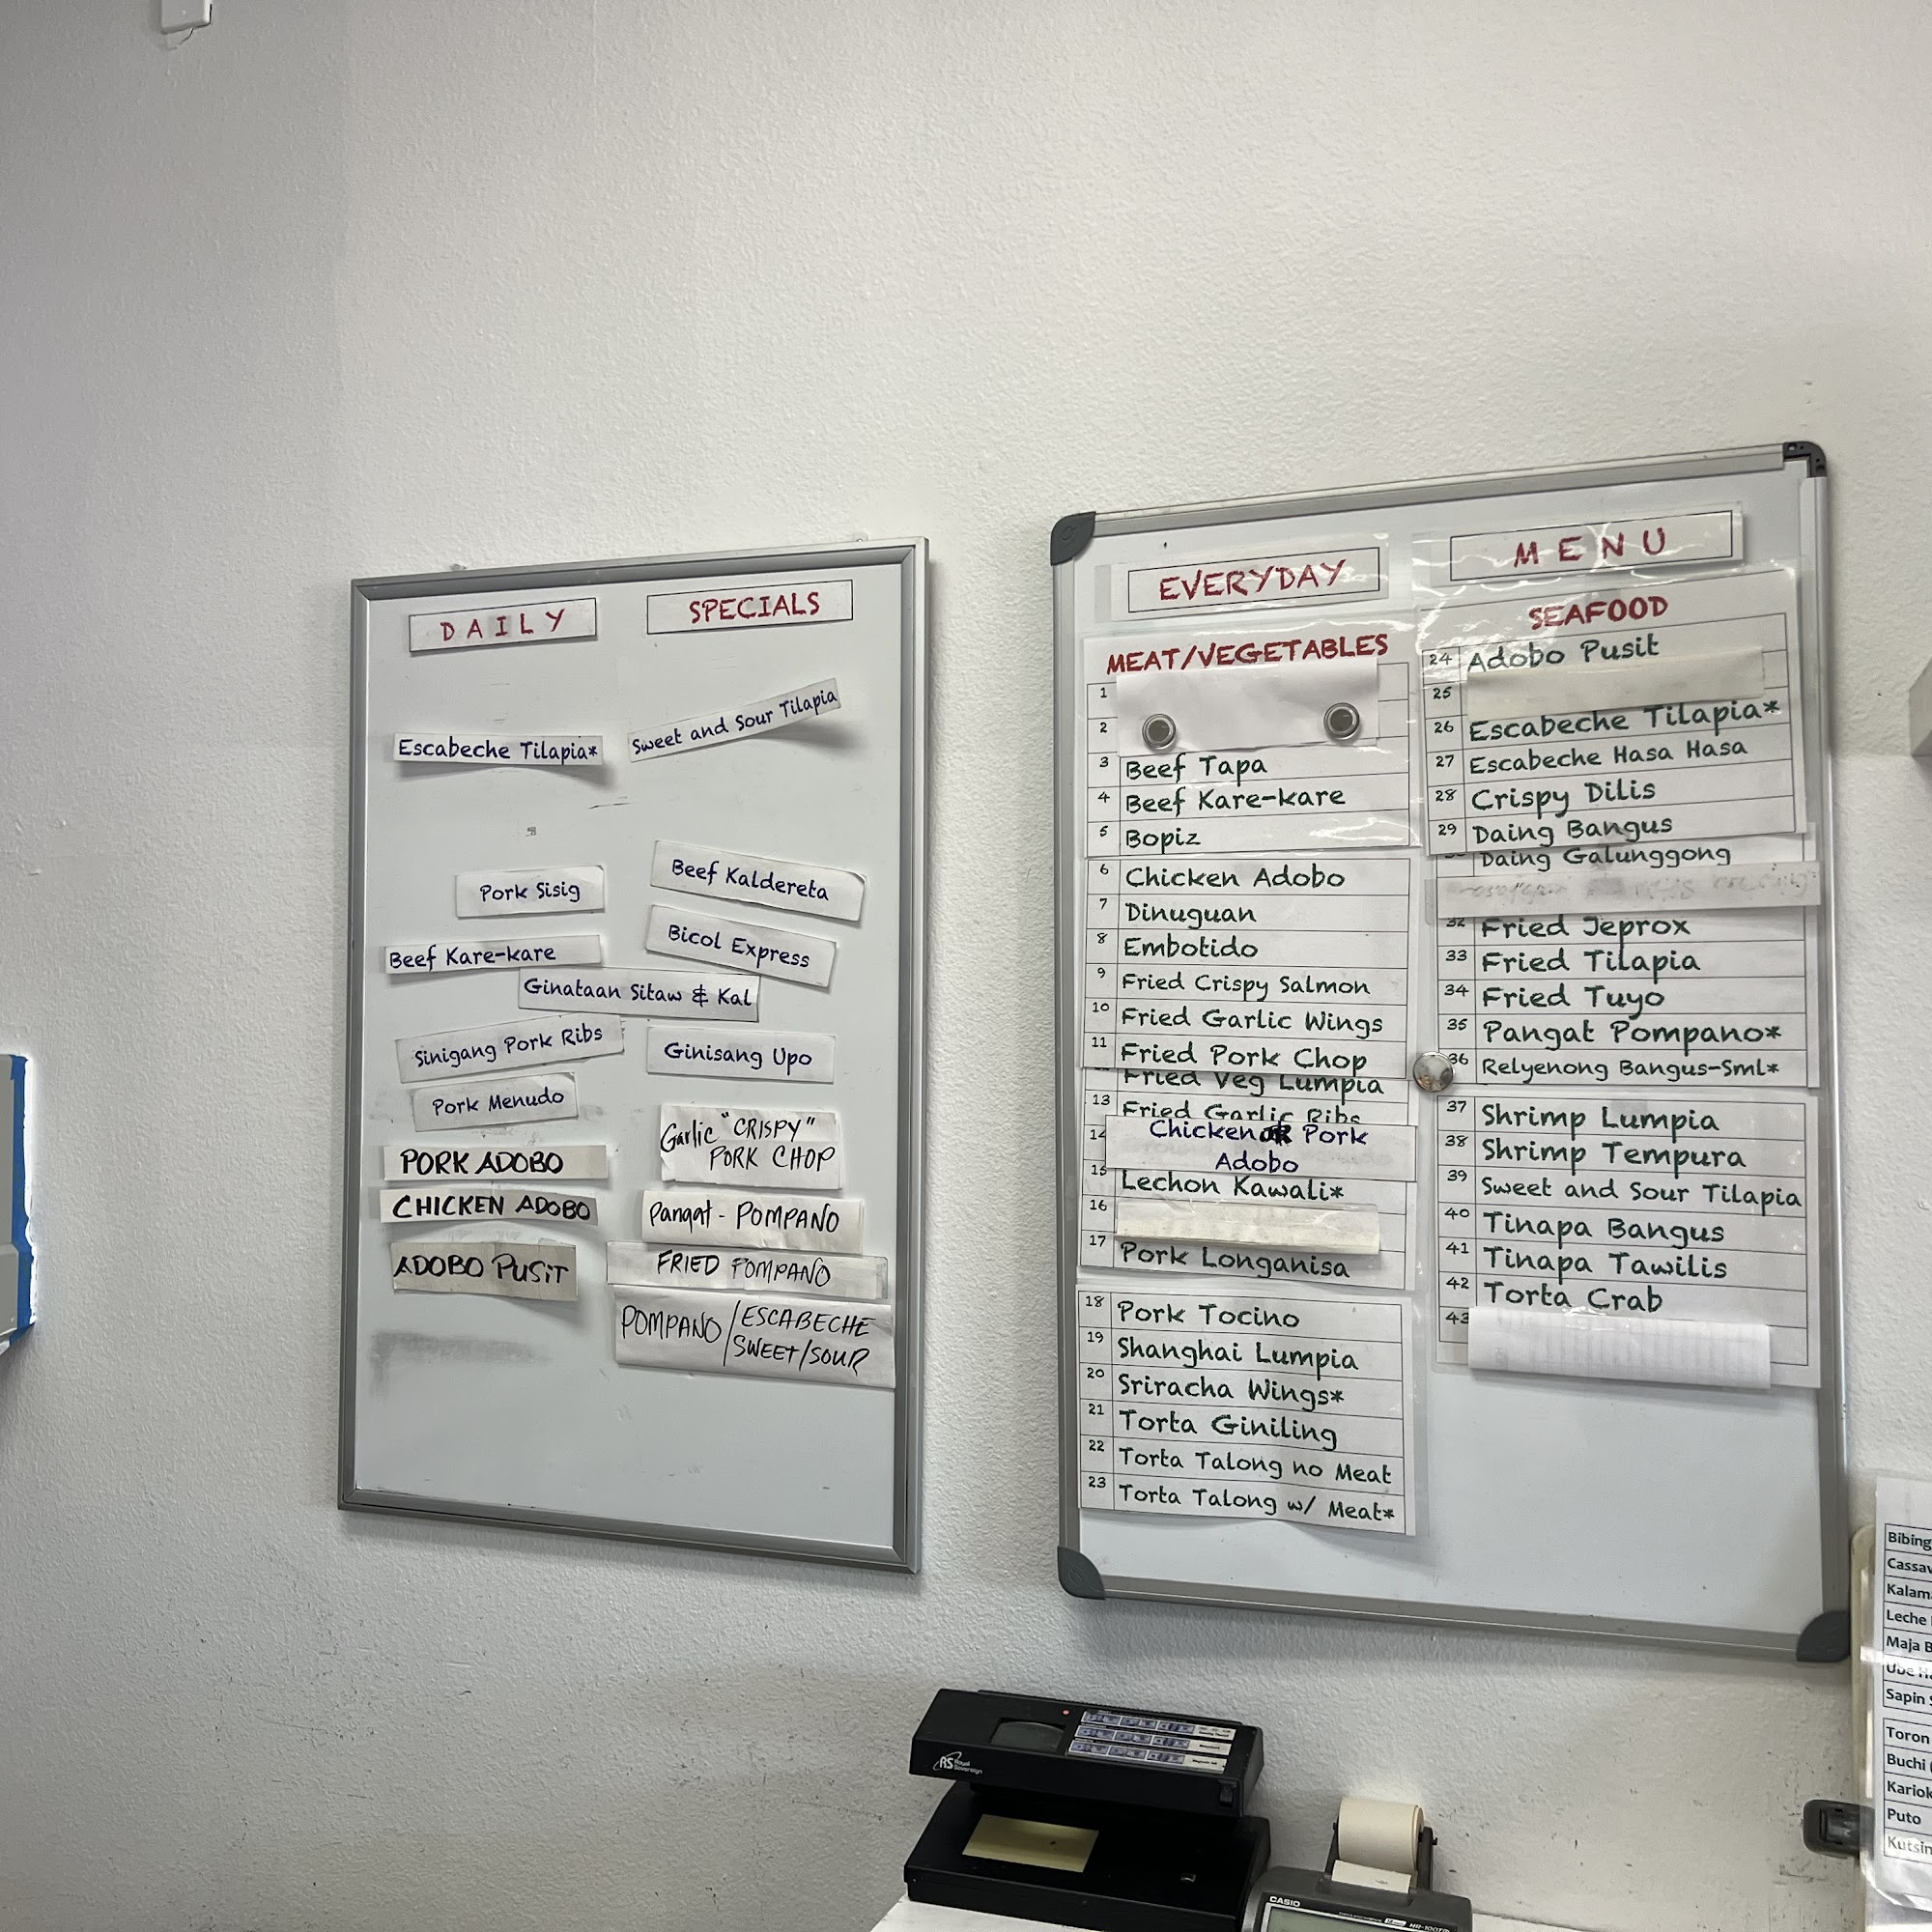 DAILY
SPECIALS
Escabeche Tilapia*
Sweet and Sour Tilapia
Pork Sisig
Beef Kaldereta
Beef Kare-kare
Bicol Express
Ginataan Sitaw & Kal
Sinigang Pork Ribs
Ginisang Upo
Pork Menudo
Garlic "CRISPY"
PORK CHOP
PORK ADOBO
CHICKEN ADOBO
Pangat - POMPANO
ADOBO PUSiT
FRIED POMPANO
POMPANO/ESCABECHE
SWEET/SOUR
EVERYDAY
MENU
MEAT/VEGETABLES
1
2
3 Beef Tapa
4 Beef Kare-kare
5 Bopiz
6 Chicken Adobo
7 Dinuguan
8 Embotido
9 Fried Crispy Salmon
10 Fried Garlic Wings
11 Fried Pork Chop
Fried Veg Lumpia
13 Fried Garlic Ribs
14 Chicken OR Pork
Adobo
15 Lechon Kawali*
16
17 Pork Longanisa
18 Pork Tocino
19 Shanghai Lumpia
20 Sriracha Wings*
21 Torta Giniling
22 Torta Talong no Meat
23 Torta Talong w/ Meat*
SEAFOOD
24 Adobo Pusit
25
26 Escabeche Tilapia*
27 Escabeche Hasa Hasa
28 Crispy Dilis
29 Daing Bangus
Daing Galunggong
32 Fried Jeprox
33 Fried Tilapia
34 Fried Tuyo
35 Pangat Pompano*
36 Relyenong Bangus-Sml*
37 Shrimp Lumpia
38 Shrimp Tempura
39 Sweet and Sour Tilapia
40 Tinapa Bangus
41 Tinapa Tawilis
42 Torta Crab
43
Bibing
Cassav
Kalam
Leche
Maja B
Ube H
Sapin S
Toron
Buchi
Kariok
Puto
Kutsin
RS Royal Sovereign
CASIO
HR-100TM